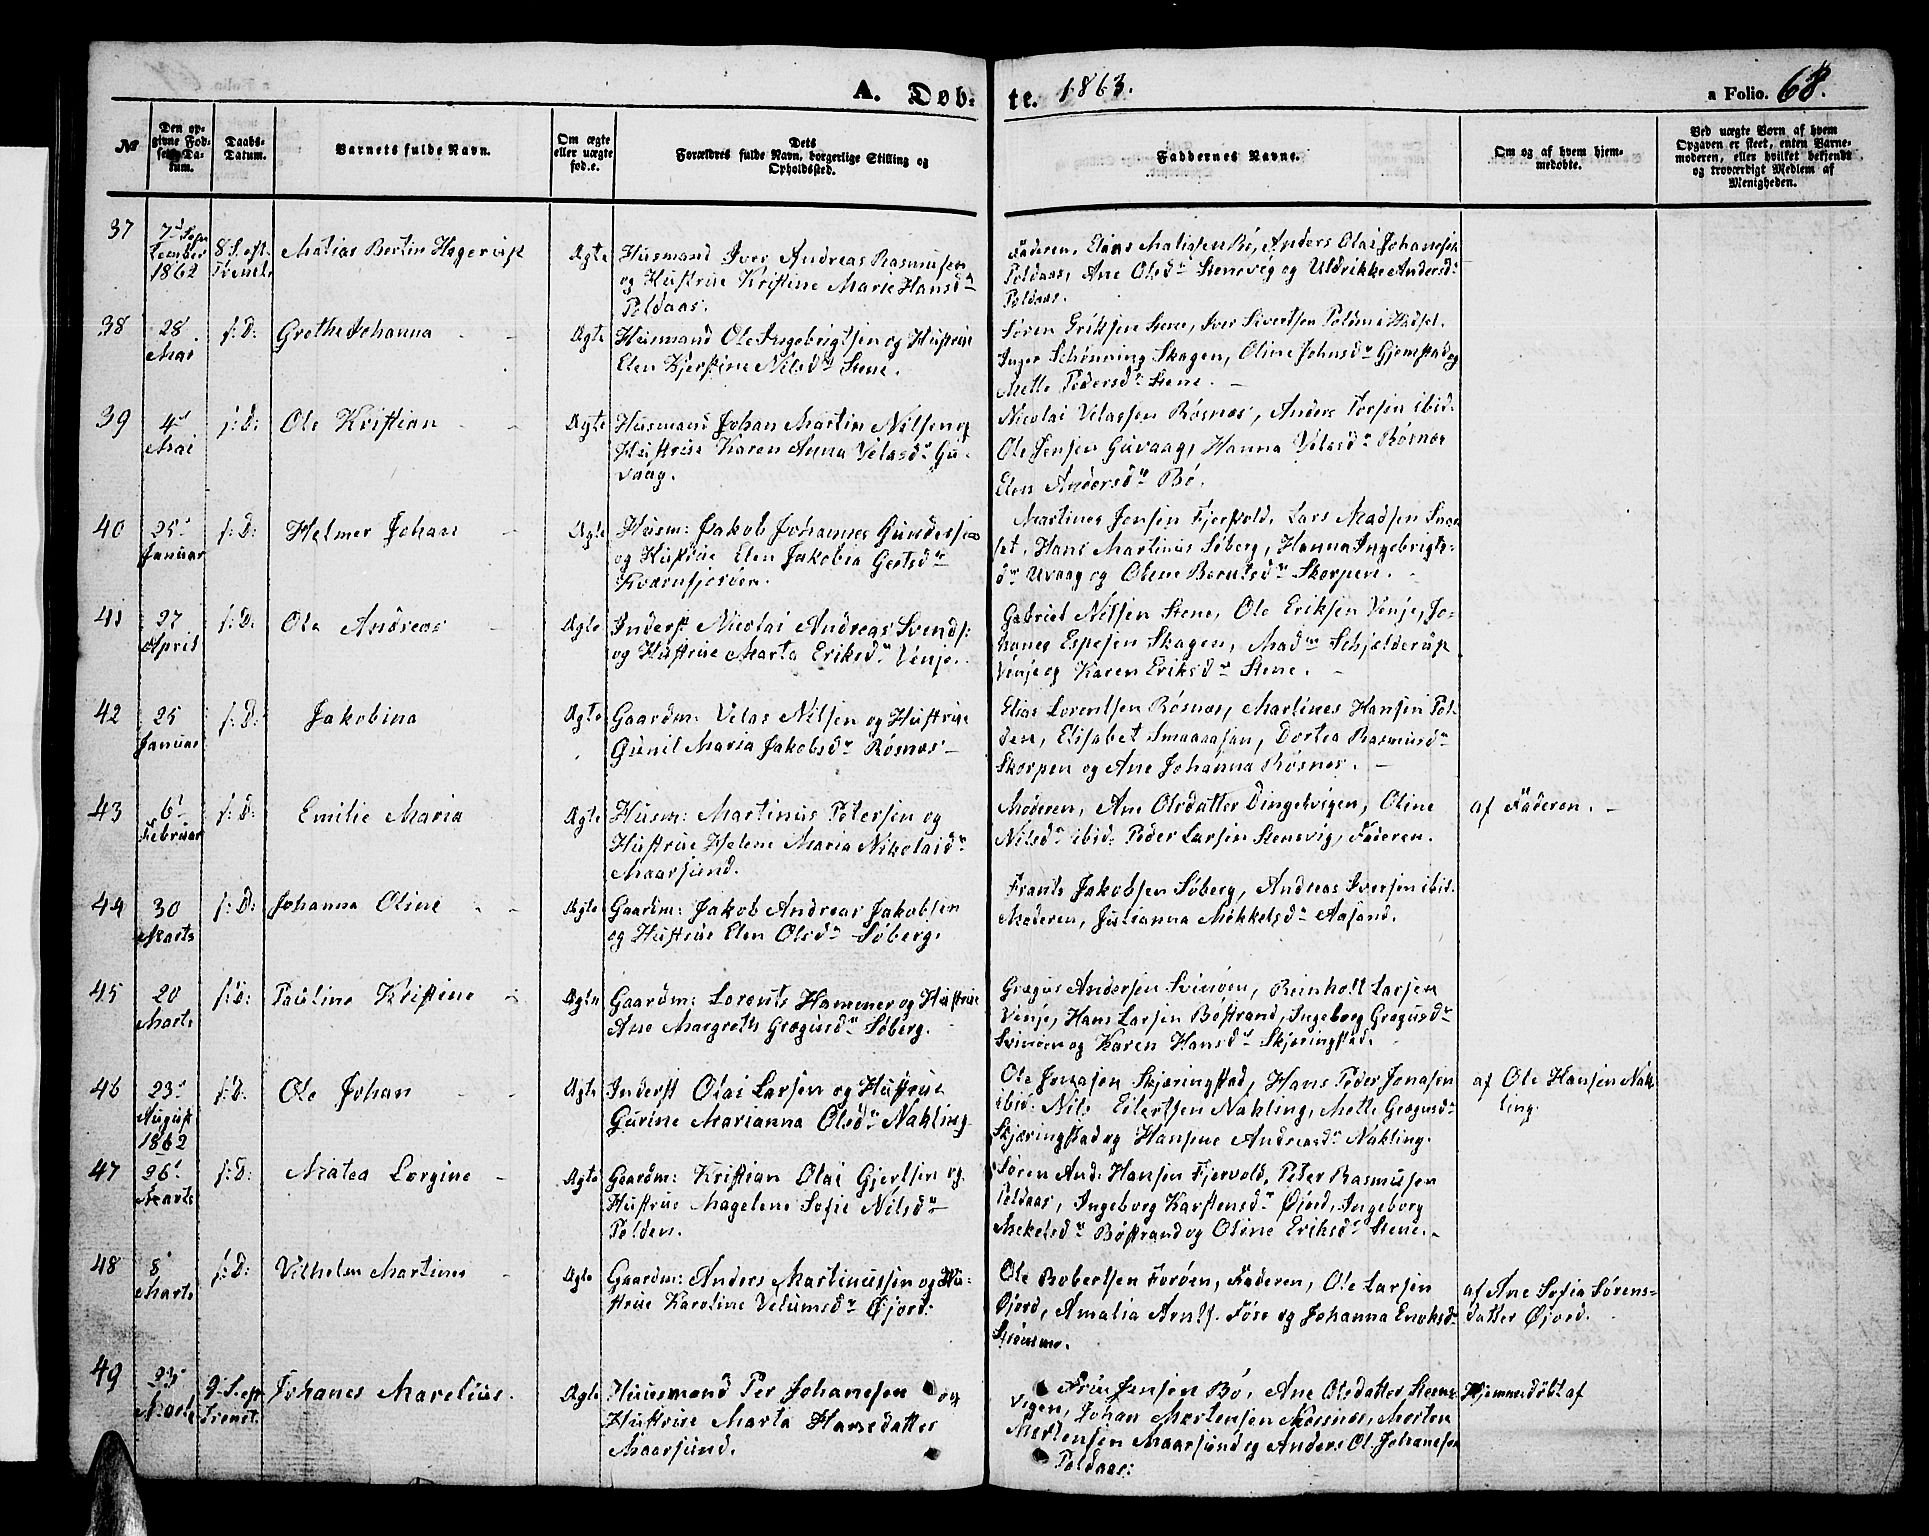 A. Døb-
te. 1863.
a Folio. 68.
№
Den op-
givne Fød-
sels Da-
tum.
Daabs-
Datum.
Barnets fulde Navn.
Om ægte
eller uægte
fød.e.
Dets
Forældres fulde Navn, borgerlige Stilling og
Opholdssted.
Faddernes Navne.
Om og af hvem hjem-
medøbte.
Ved uægte Børn af hvem
Opgaven er skeet, enten Barne-
moderen, eller hvilket bekjendt
og troværdigt Medlem af
Menigheden.
37
7d Sep-
tember
1862
8 S. eft.
Trenit.
Matias Bertin Hagerup
Ægte
Husmand Iver Andreas Rasmusen
og Hustrue Kristine Marie Hansdr
Poldaas.
Faderen, Elias Matisen Bø, Anders Olai Johanesen
Poldaas, Ane Olsdr Stenevig og Uldrikke Andersdr
Poldaas.
38
28
Mai
s: D:
Grethe Johanna
Ægte
Husmand Ole Ingebrigtsen og Hustrue
Elen Kjerstine Nilsdr Stene.
Søren Eriksen Stene, Iver Sivertsen i Hadsel.
Inger Schønning Skagen, Oline Johnsdr Gjemstad og
Mette Pedersdr Stene.
39
4d
Mai
s: D:
Ole Kristian
Ægte
Husmand Johan Martin Nilsen og
Hustrue Karen Anna Velasdr Gu-
vaag.
Nicolai Velassen Røsnes, Anders Torsen ibid.
Ole Jensen Guvaag, Hanna Velasdr Røsnes
Elen Andersdr Bø.
40
25d
Januar
s: D:
Helmer Johan
Ægte
Husm: Jakob Johannes Gundersen
og Hustrue Elen Jakobia Gertsdr
Kvarnfjorden.
Martines Jensen Fjervold, Lars Madsen Snor-
set, Hans Martinus Søberg, Hanna Ingebrigts-
dr Uvaag og Olene Berntsdr Skorpen.
41
27
April
s: D:
Ole Andreas
Ægte
Inderst Nicolai Andreas Svends:
og Hustrue Marta Eriksdr Venje.
Gabriel Nilsen Stene, Ole Eriksen Venje, Jo-
hanes Espesen Skagen, Madme Schjelderup
Venje og Karen Eriksdr Stene.
42
25
Januar
s: D:
Jakobina
Ægte
Gaardm: Velas Nilsen og Hustrue
Gunil Maria Jakobsdr Røsnes
Elias Lorentsen Røsnes, Martines Hansen Pol-
den, Elisabet Smaaasan, Dortea Rasmusdr
Skorpen og Ane Johanna Røsnes.
43
6d
Februar
s: D:
Emilie Maria
Ægte
Husm: Martinus Petersen og
Hustrue Helene Maria Nikolaidr
Maarsund.
Moderen, Ane Olsdatter Dingelvigen, Oline
Nilsdr ibid: Peder Larsen Stensvig, Faderen.
af Faderen.
44
30
Marts
s: D:
Johanna Oline
Ægte
Gaardm: Jakob Andreas Jakobsen
og Hustrue Elen Olsdr Søberg.
Frants Jakobsen Søberg, Andreas Iversen ibid.
Moderen, Julianna Mikkelsdr Aasand.
45
20
Marts
s: D:
Pauline Kristine
Ægte
Gaardm: Lorents Hammer og Hustrue
Ane Margrethe Grægusdr Søberg.
Grægus Andersen Svinøen, Reinholt Larsen
Venje, Hans Larsen Bøstrand, Ingeborg Gregusdr
Svinøen og Karen Hansdr Skjæringstad.
46
23d
August
1862
s: D:
Ole Johan
Ægte
Inderst Olai Larsen og Hustrue
Gurine Marianna Olsdr Nakling
Ole Jonasen Skjæringstad, Hans Peder Jonasen
ibid: Nils Eilertsen Nakling, Mette Grægusdr
Skjæringstad og Hansine Andreasdr Nakling.
af Ole Hansen Nak-
ling.
47
26d
Marts
s: D:
Matea Lorgine
Ægte
Gaardm: Kristian Olai Gjertsen og
Hustrue Magelene Sofie Nilsdr
Polden.
Søren And: Hansen Fjervold, Peter Rasmusen
Poldaas, Ingeborg Karstensdr Øjord, Ingeborg
Mekelsdr Bøstrand og Oline Eriksdr Stene.
48
8d
Marts
s: D:
Vilhelm Martines
Ægte
Gaardm: Anders Martinussen og Hu-
strue Karoline Velumsdr Øjord:
Ole Robertsen Forøen, Faderen, Ole Larsen
Øjord, Amalia Arnts. Føre og Johanna Enoksdr
af Ane Sofia Sørens-
datter Øjord.
49
23d
Marts
9. S. eft
Trenet.
Johanes Marelius.
Ægte
Huusmand Per Johanesen og
Hustrue Marta Hansdatter
Maarsund.
Jensen Bø, Ane Olsdatter Stens-
vigen, Johan Mortensen Røssnes, Morten
Mortensen Maarsund og Anders Ol. Johanesen
Poldaas:
Hjemmedøbt af